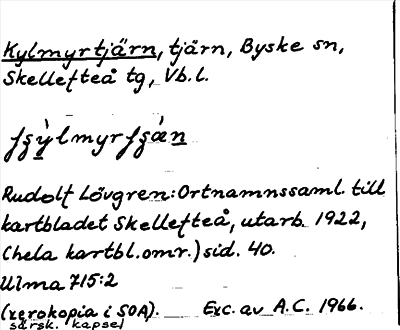 Kylmyrtjärn, tjärn, Byske sn,
Skellefteå tg, Vb.l.
Rudolf Lövgren: Ortnamnssaml. till
kartbladet Skellefteå, utarb. 1922,
(hela kartbl.omr.) sid. 40.
Ulma 715:2
(xerokopia i SOA). Exc. av A.C. 1966.
särsk. kapsel